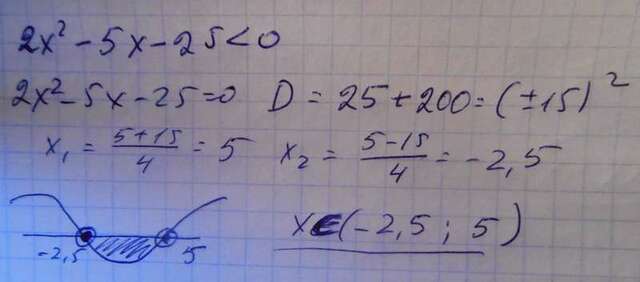 2x² - 5x - 25 < 0
2x² - 5x - 25 = 0 D = 25 + 200 = (±15)²
x₁ = (5+15)/4 = 5 x₂ = (5-15)/4 = -2,5
-2,5 5 x∈(-2,5 ; 5)